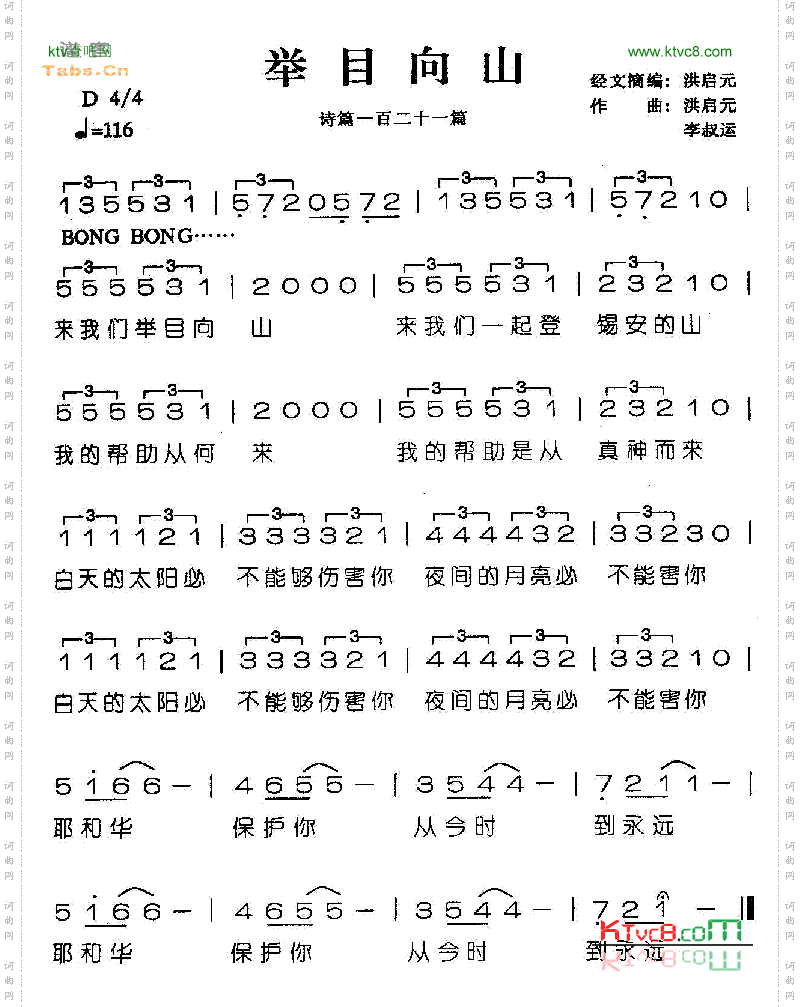 ktv查吧网
Tabs.Cn
www.ktvc8.com
举目向山
诗篇一百二十一篇
D 4/4
♩=116
经文简编：洪启元
作 曲：洪启元
李叔运
3 3 3 3 3 3
135531 | 5720572 | 135531 | 57210 |
BONG BONG……
3 3 3 3 3
555531 | 2000 | 555531 | 23210 |
来我们举目向 山 来我们一起登 锡安的山
3 3 3 3 3
555531 | 2000 | 555531 | 23210 |
我的帮助从何 来 我的帮助是从 真神而来
3 3 3 3 3 3 3
111121 | 333321 | 444432 | 33230 |
白天的太阳必 不能够伤害你 夜间的月亮必 不能害你
3 3 3 3 3 3 3
111121 | 333321 | 444432 | 33210 |
白天的太阳必 不能够伤害你 夜间的月亮必 不能害你
5 166 – | 4655 – | 3544 – | 7211 – |
耶和华 保护你 从今时 到永远
5 166 – | 4655 – | 3544 – | 721 – ‖
耶和华 保护你 从今时 到永远
KTvc8.com
KTvc8.com
词曲网